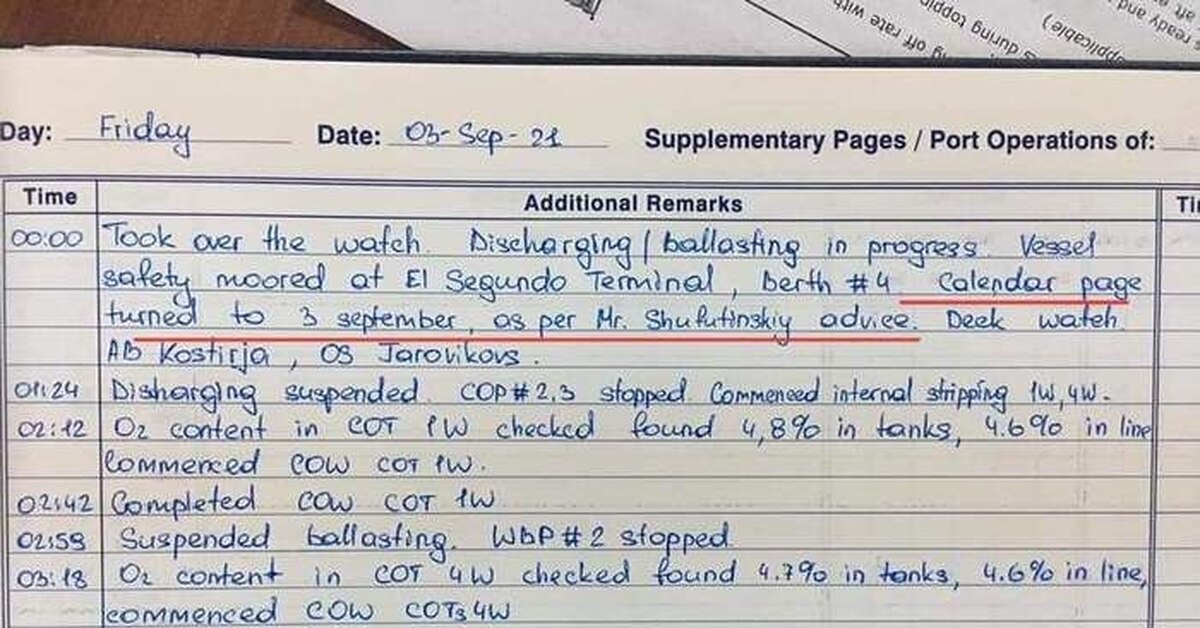 Day: Friday Date: 03-Sep-21 Supplementary Pages / Port Operations of:
Time Additional Remarks
00:00 Took over the watch. Discharging / ballasting in progress. Vessel
safety moored at El Segundo Terminal, berth #4 Calendar page
turned to 3 september, as per Mr. Shufutinskiy advice. Deck watch
AB Kostirja, OS Jarovikovs.
01:24 Disharging suspended. COP#2,3 stopped. Commenced internal stripping 1W, 4W.
02:12 O2 content in COT 1W checked found 4,8% in tanks, 4.6% in line
Commenced COW COT 1W.
02:42 Completed COW COT 1W
02:59 Suspended ballasting. WBP#2 stopped.
03:18 O2 content in COT 4W checked found 4.7% in tanks, 4.6% in line,
commenced COW COTs 4W